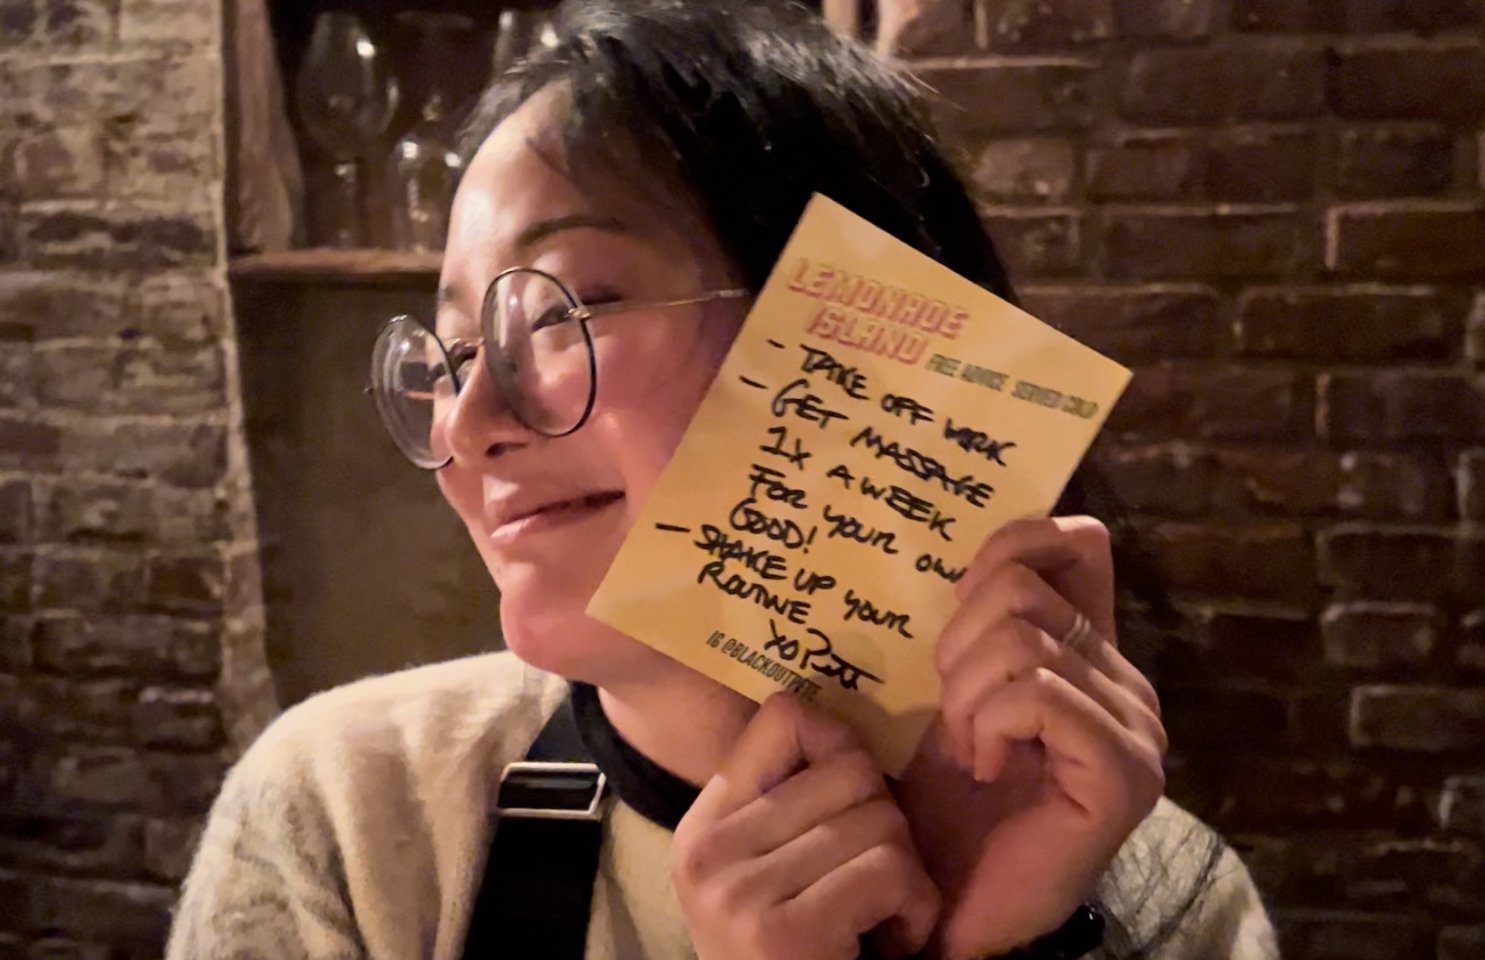 LEMONADE
ISLAND FREE ADVICE SERVED COLD
- TAKE OFF WORK
- GET MASSAGE
1X A WEEK
FOR YOUR OWN
GOOD!
- SHAKE UP YOUR
ROUTINE
XO Pete
IG @BLACKOUTPETE